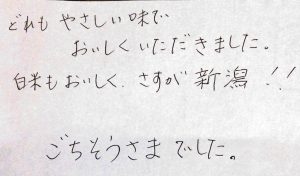 どれも やさしい味で
おいしく いただきました。
白米も おいしく、さすが 新潟!!
ごちそうさまでした。